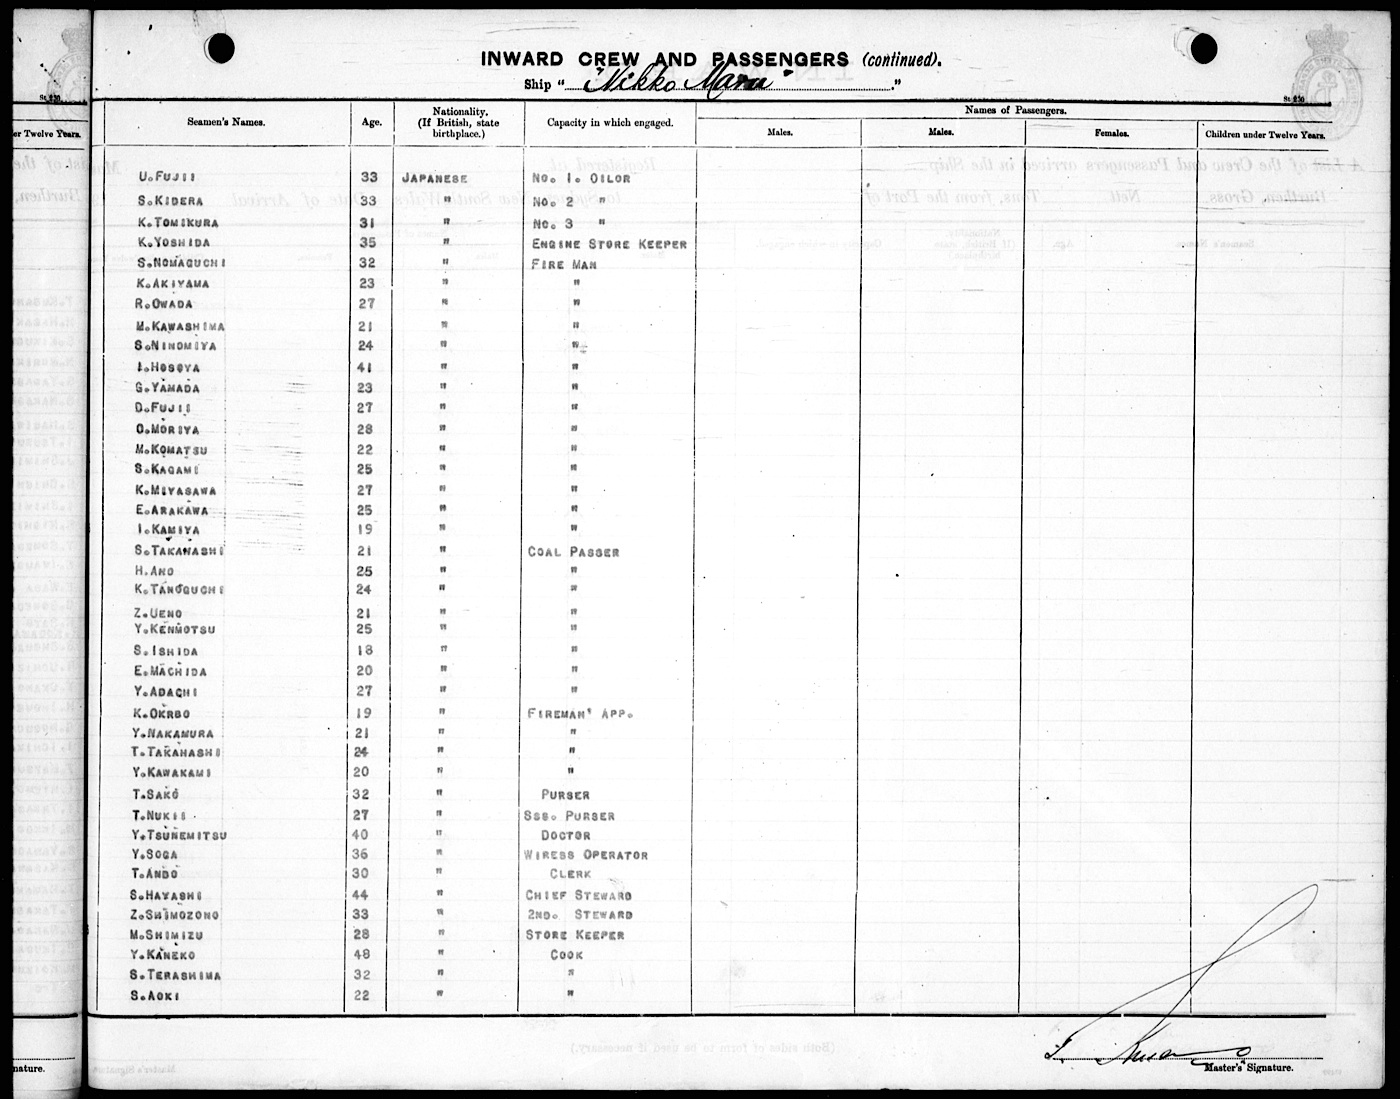 INWARD CREW AND PASSENGERS (continued).
Ship "Nikko Maru"
Seamen's Names. Age. Nationality. (If British, state birthplace.) Capacity in which engaged. Names of Passengers.
Males. Males. Females. Children under Twelve Years.
U.FUJII 33 JAPANESE NO. 1. OILOR
S.KIDERA 33 " NO. 2 "
K.TOMIKURA 31 " NO. 3 "
K.YOSHIDA 35 " ENGINE STORE KEEPER
S.NOMAGUCHI 32 " FIRE MAN
K.AKIYAMA 23 " "
R.OWADA 27 " "
M.KAWASHIMA 21 " "
S.NINOMIYA 24 " "
I.HOSOYA 41 " "
G.YAMADA 23 " "
D.FUJII 27 " "
O.MORIYA 28 " "
M.KOMATSU 22 " "
S.KAGAMI 25 " "
K.MIYASAWA 27 " "
E.ARAKAWA 25 " "
I.KAMIYA 19 " "
S.TAKAHASHI 21 " COAL PASSER
H.ANO 25 " "
K.TANOGUCHI 24 " "
Z.UENO 21 " "
Y.KENMOTSU 25 " "
S.ISHIDA 18 " "
E.MACHIDA 20 " "
Y.ADACHI 27 " "
K.OKRBO 19 " FIREMAN' APP.
Y.NAKAMURA 21 " "
T.TAKAHASHI 24 " "
Y.KAWAKAMI 20 " "
T.SAKO 32 " PURSER
T.NUKII 27 " SSS. PURSER
Y.TSUNEMITSU 40 " DOCTOR
Y.SOGA 36 " WIRESS OPERATOR
T.ANDO 30 " CLERK
S.HAYASHI 44 " CHIEF STEWARD
Z.SHIMOZONO 33 " 2ND. STEWARD
M.SHIMIZU 28 " STORE KEEPER
Y.KANEKO 48 " COOK
S.TERASHIMA 32 " "
S.AOKI 22 " "
Master's Signature.